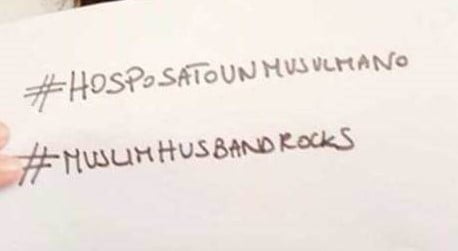 #HOSPOSATOUNMUSULMANO
#MUSLIMHUSBANDROCKS